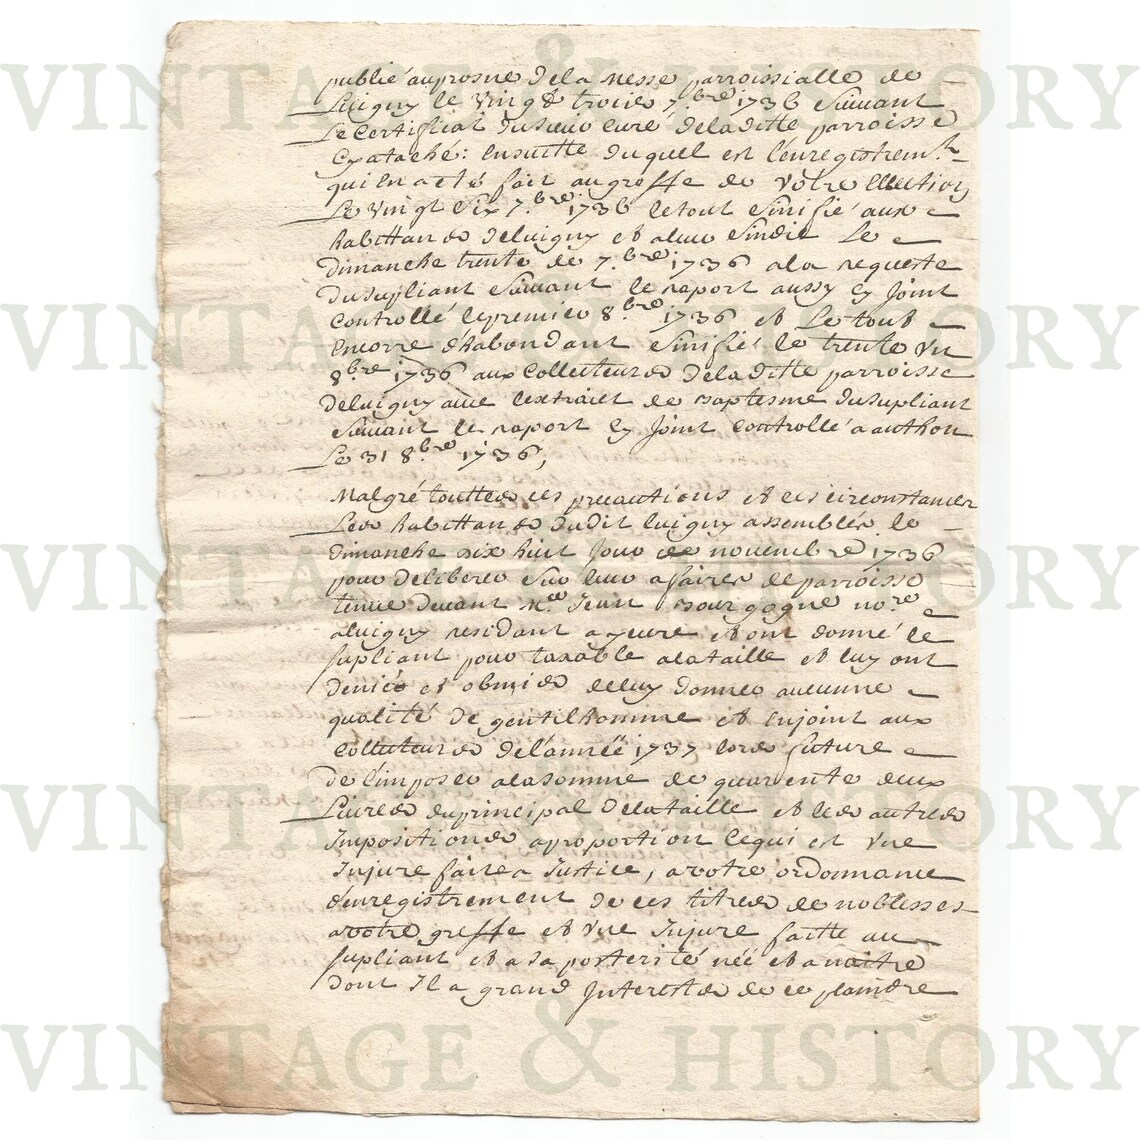 publié au prosne de la messe parroissialle de
Luigny le vingt troiee 7.bre 1736 suivant
Le Certificat du sieur curé de la ditte parroisse
Cy ataché: ensuitte duquel est l'enregistremt.
qui en a eté fait au greffe de votre Election
Le vingt six 7.bre 1736 le tout sinifié aux
habittans de luigny et a leur sindic Le
dimanche trente de 7.bre 1736 a la requeste
du supliant suivant le raport aussy cy joint
Controllé le premier 8.bre 1736 et Le tout
encorre d'habondant sinifié le trente un
8bre 1736 aux Collecteurs de la ditte parroisse
de luigny avec lextrait de baptesme du supliant
suivant le raport cy joint controllé a authon
Le 31 8bre 1736,
Malgré touttes ces precautions et ces circonstances
Les habittans dudit luigny assemblés le
dimanche dix huit jour de novembre 1736
pour deliberer sur leur afaires de parroisse
tenue devant Me. Jean Bourgogne nore.
a luigny residant a yeure et ont donné le
supliant pour taxable a la taille et luy ont
deniés et obmis de luy donner aucunne
qualité de gentilhomme et enjoint aux
Collecteurs de l'année 1737 lors future
de l'imposer a la somme de quarente deux
Livres du principal de la taille et les autres
Impositions a proportion Ce qui est vne
Injure faite a Justice, a votre ordonnance
d'enregistrement de ces titres de noblesses
a votre greffe et vne Injure faitte au
supliant et a sa posterité née et a naitre
dont Il a grand Interest de ce plaindre
VINTAGE & HISTORY
VINTAGE & HISTORY
VINTAGE & HISTORY
VINTAGE & HISTORY
VINTAGE & HISTORY